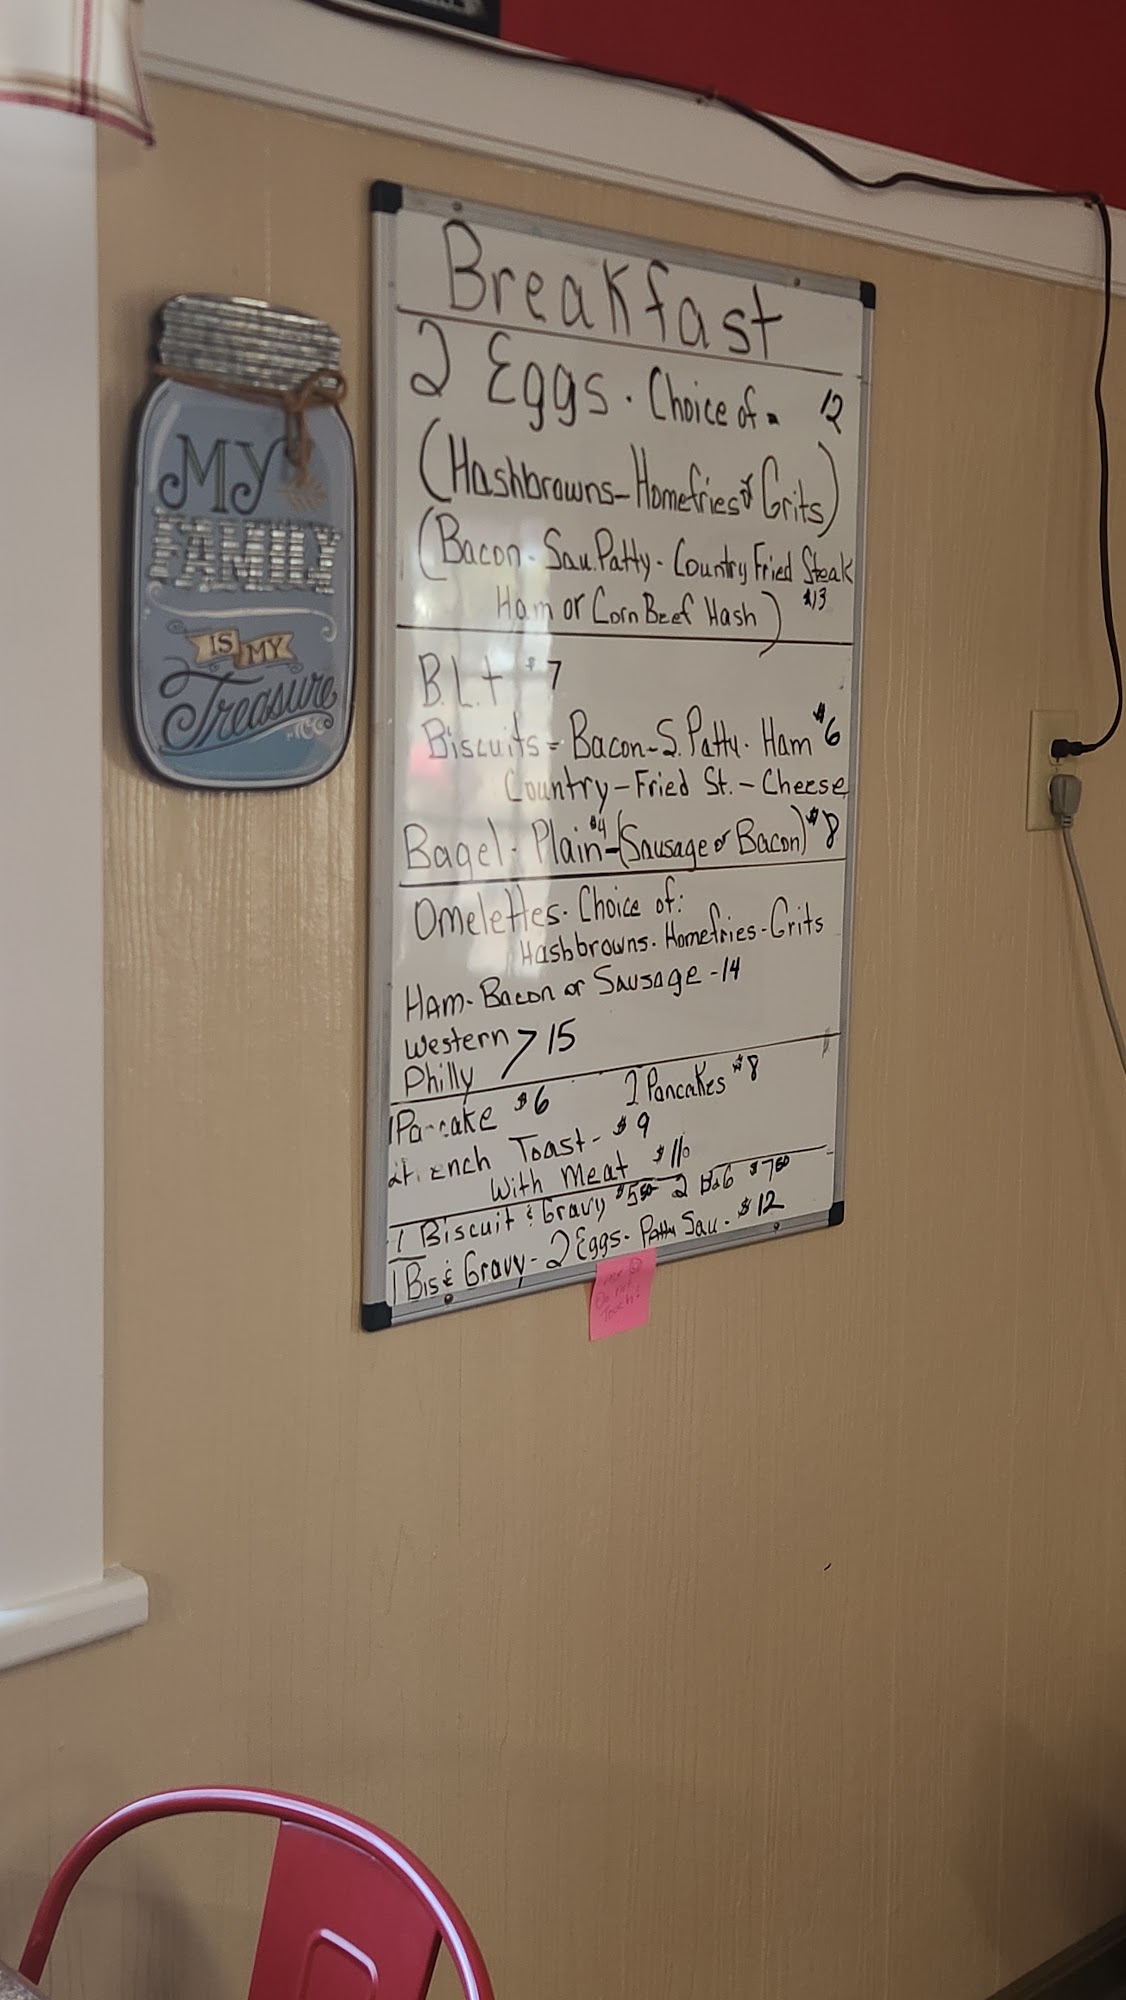 Breakfast
2 Eggs. Choice of - 12
(Hashbrowns-Homefries or Grits)
(Bacon-Sau.Patty-Country Fried Steak
$13
Ham or Corn Beef Hash)
B.L.t $7
Biscuits = Bacon-S.Patty-Ham $6
Country-Fried St.-Cheese
Bagel-Plain $4-(Sausage or Bacon) $8
Omelettes. Choice of:
Hashbrowns. Homefries-Grits
Ham-Bacon or Sausage -14
Western
Philly > 15
1 Pa-cake $6 2 Pancakes $8
ench Toast- $9
With Meat $
1 Biscuit & Gravy $5.50 2 B&G $7.50
1 Bis & Gravy-2 Eggs-Patty Sau.-$12
Do not
Touch!
MY
FAMILY
IS MY
Treasure